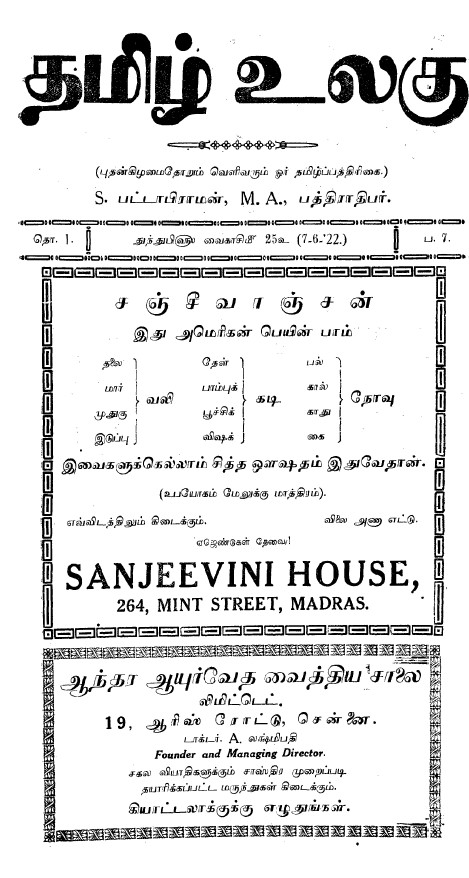 தமிழ் உலகு
(புதன்கிழமைதோறும் வெளிவரும் ஓர் தமிழ்ப்பத்திரிகை.)
S. பட்டாபிராமன், M. A., பத்திராதிபர்.
தொ. 1. துந்துபி௵ வைகாசி௴ 25௳ (7-6-'22.) ப. 7.
சஞ்சீவாஞ்சன்
இது அமெரிகன் பெயின் பாம்
தலை
மார்
முதுகு
இடுப்பு
வலி
தேள்
பாம்புக்
பூச்சிக்
விஷக்
கடி
பல்
கால்
காது
கை
நோவு
இவைகளுக்கெல்லாம் சித்த ஔஷதம் இதுவேதான்.
(உபயோகம் மேலுக்கு மாத்திரம்).
எவ்விடத்திலும் கிடைக்கும். விலை அணா எட்டு.
ஏஜெண்டுகள் தேவை!
SANJEEVINI HOUSE,
264, MINT STREET, MADRAS.
ஆந்தா ஆயுர்வேத வைத்திய சாலை
லிமிட்டெட்.
19, ஆரிஸ் ரோட்டு, சென்னை.
டாக்டர். A. லக்ஷ்மிபதி
Founder and Managing Director.
சகல வியாதிகளுக்கும் சாஸ்திர முறைப்படி
தயாரிக்கப்பட்ட மருந்துகள் கிடைக்கும்.
கியாட்டலாக்குக்கு எழுதுங்கள்.